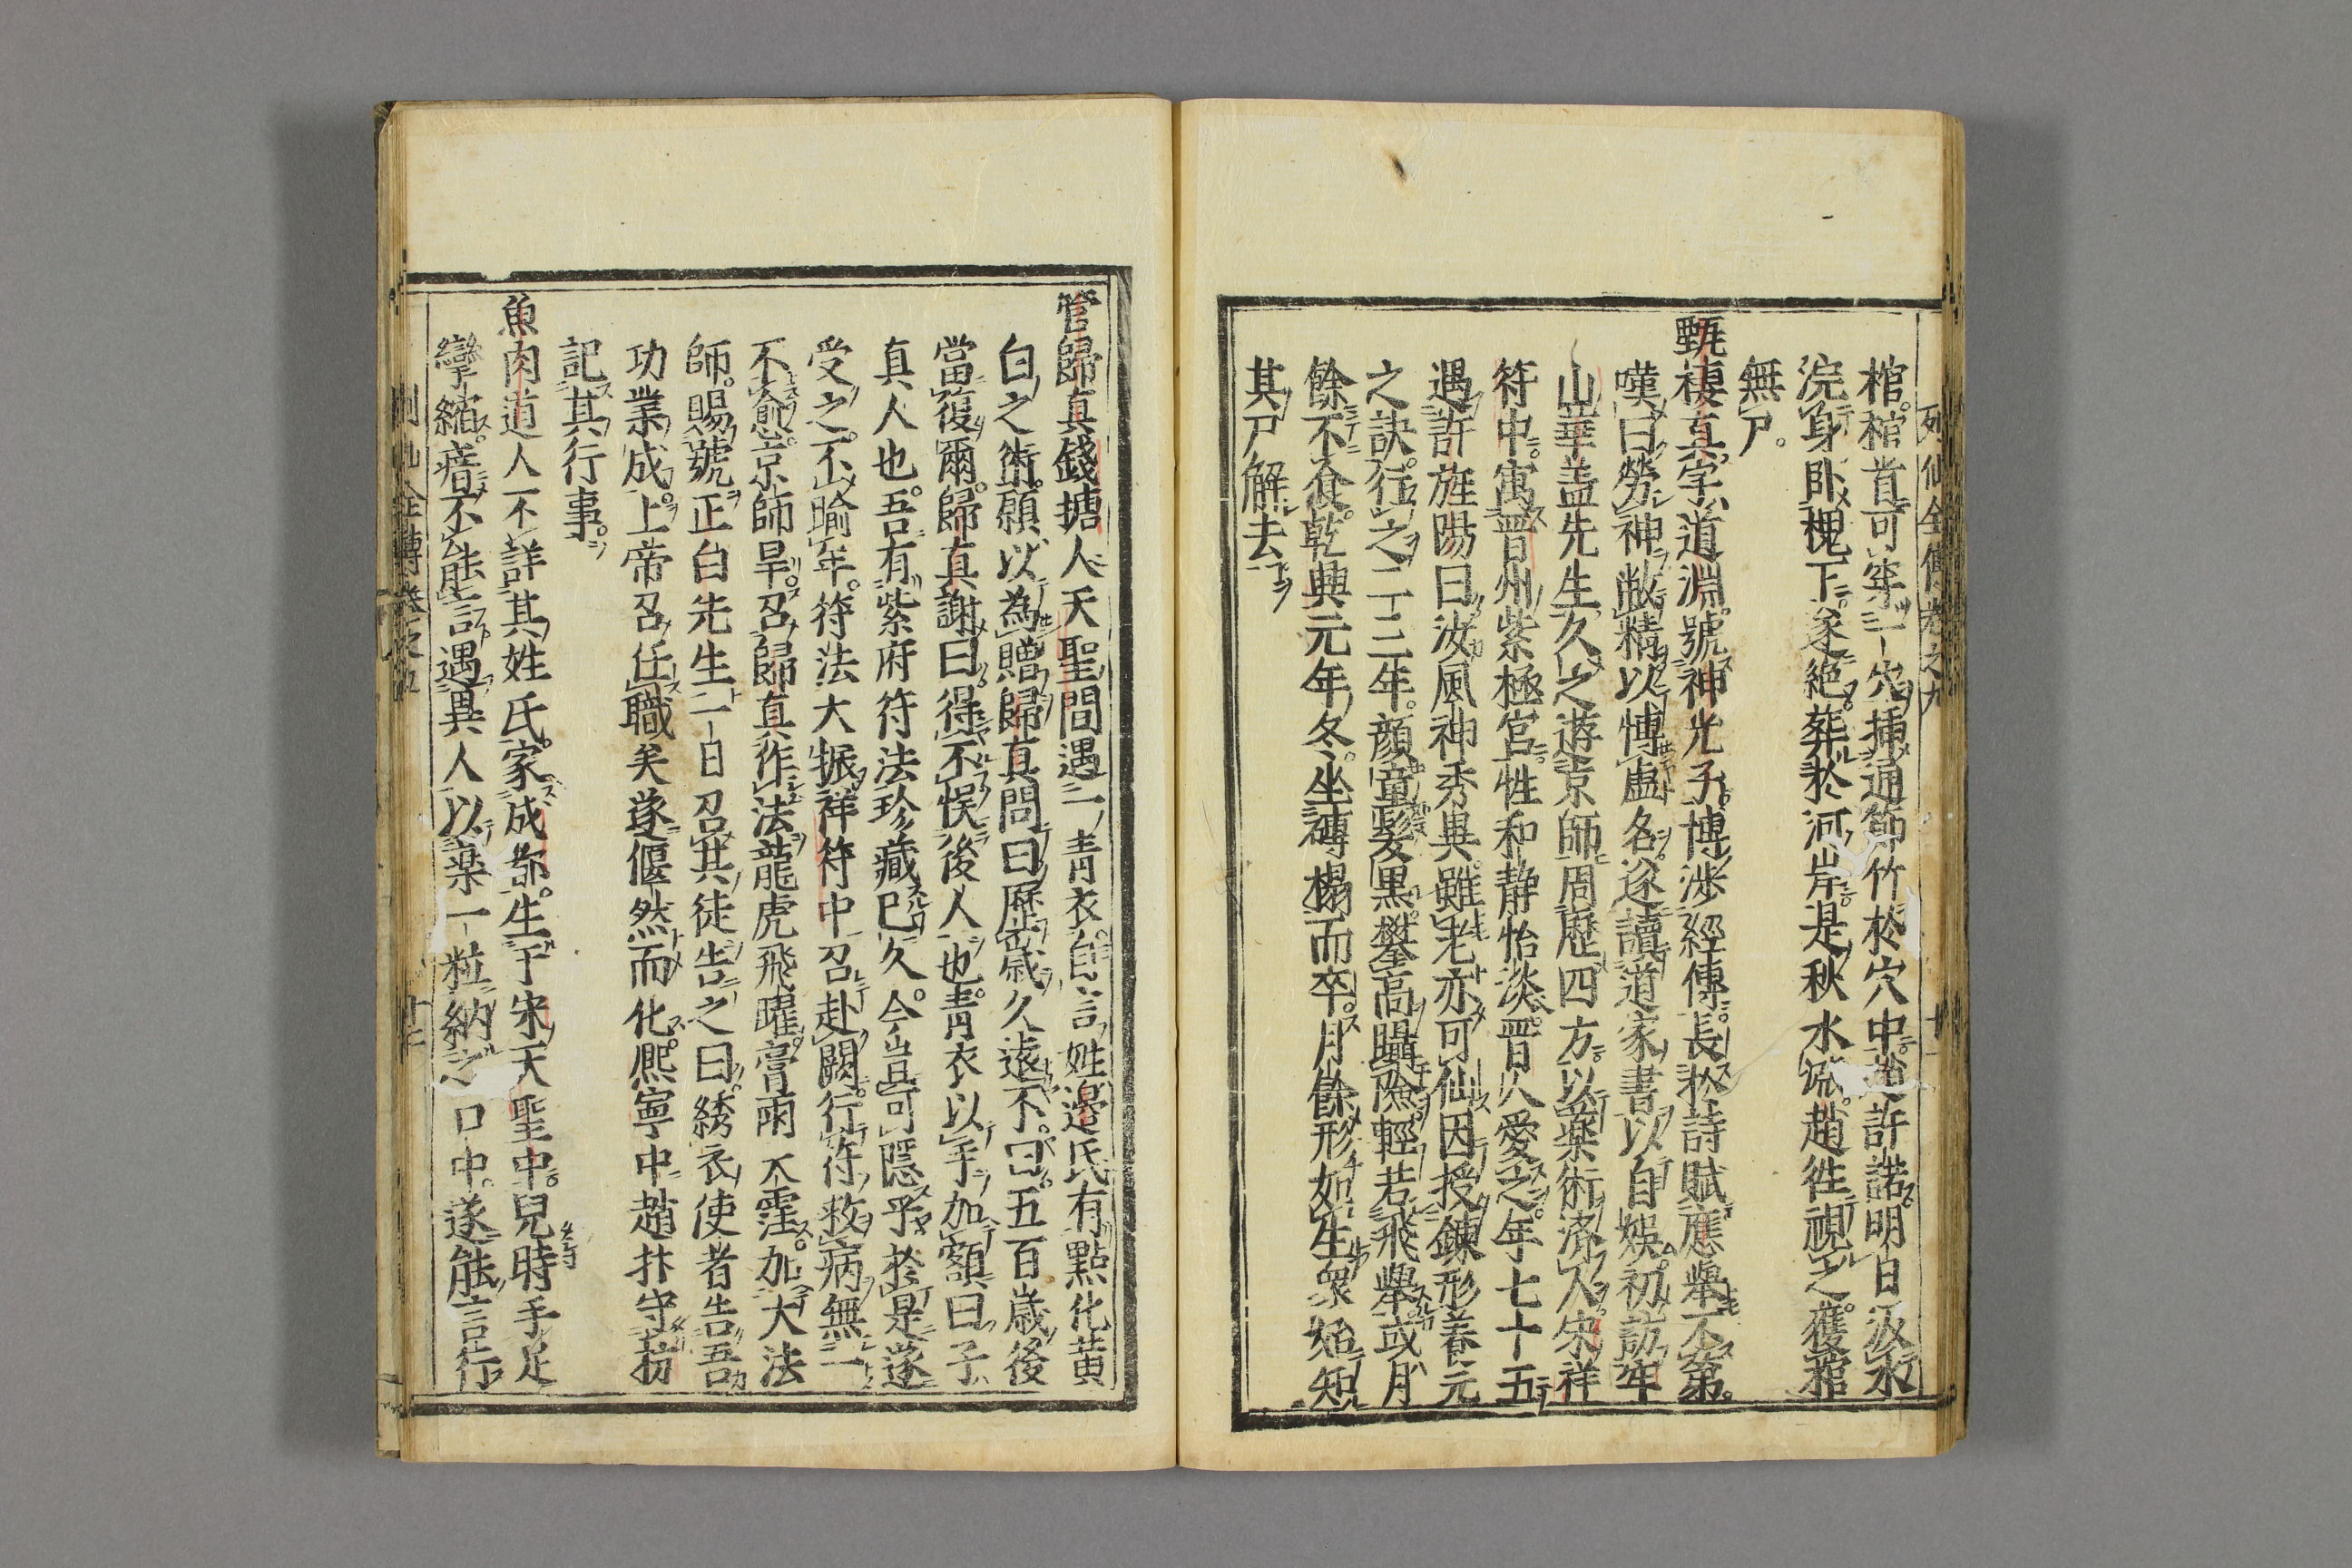 列仙全傳卷之九
棺棺首可穿一穴揷通節竹於穴中趙許諾明日汲水
浣身卧槐下遂絶葬於河岸是秋水漲趙徃視之獲棺
無尸
甄棲真字道淵號神光子博涉經傳長於詩賦應舉不第
嘆曰勞神敝精以博虛名遂讀道家書以自娛初訪牢
山華盖先生久之遊京師周歷四方以藥術濟人宋祥
符中寓晋州紫極宮性和静恬淡晋人愛之年七十五
遇許旌陽曰汝風神秀異雖老亦可仙因授鍊形養元
之訣行之二三年顔童髮黒攀高躡險輕若飛舉或月
餘不食乾興元年冬坐磚榻而卒月餘形如生衆始知
其尸解去
管歸真錢塘人天聖間遇一青衣自言姓邊氏有點化黃
白之術願以為贈歸真問曰歷歲久遠不曰五百歲後
當復爾歸真謝曰得不悮後人也青衣以手加額曰子
真人也吾有紫府符法珍藏巳久今豈可隱乎於是遂
受之不踰年符法大振祥符中召赴闕行符救病無一
不愈京師旱召歸真作法龍虎飛躍膏雨不霔加大法
師賜號正白先生一日召其徒告之曰綉衣使者告吾
功業成上帝召任職矣遂偃然而化熈寧中趙抃守杭
記其行事
魚肉道人不詳其姓氏家成都生于宋天聖中兒時手足
攣縮瘖不能言遇異人以藥一粒納 口中遂能言行
列仙全傳卷之九 十二